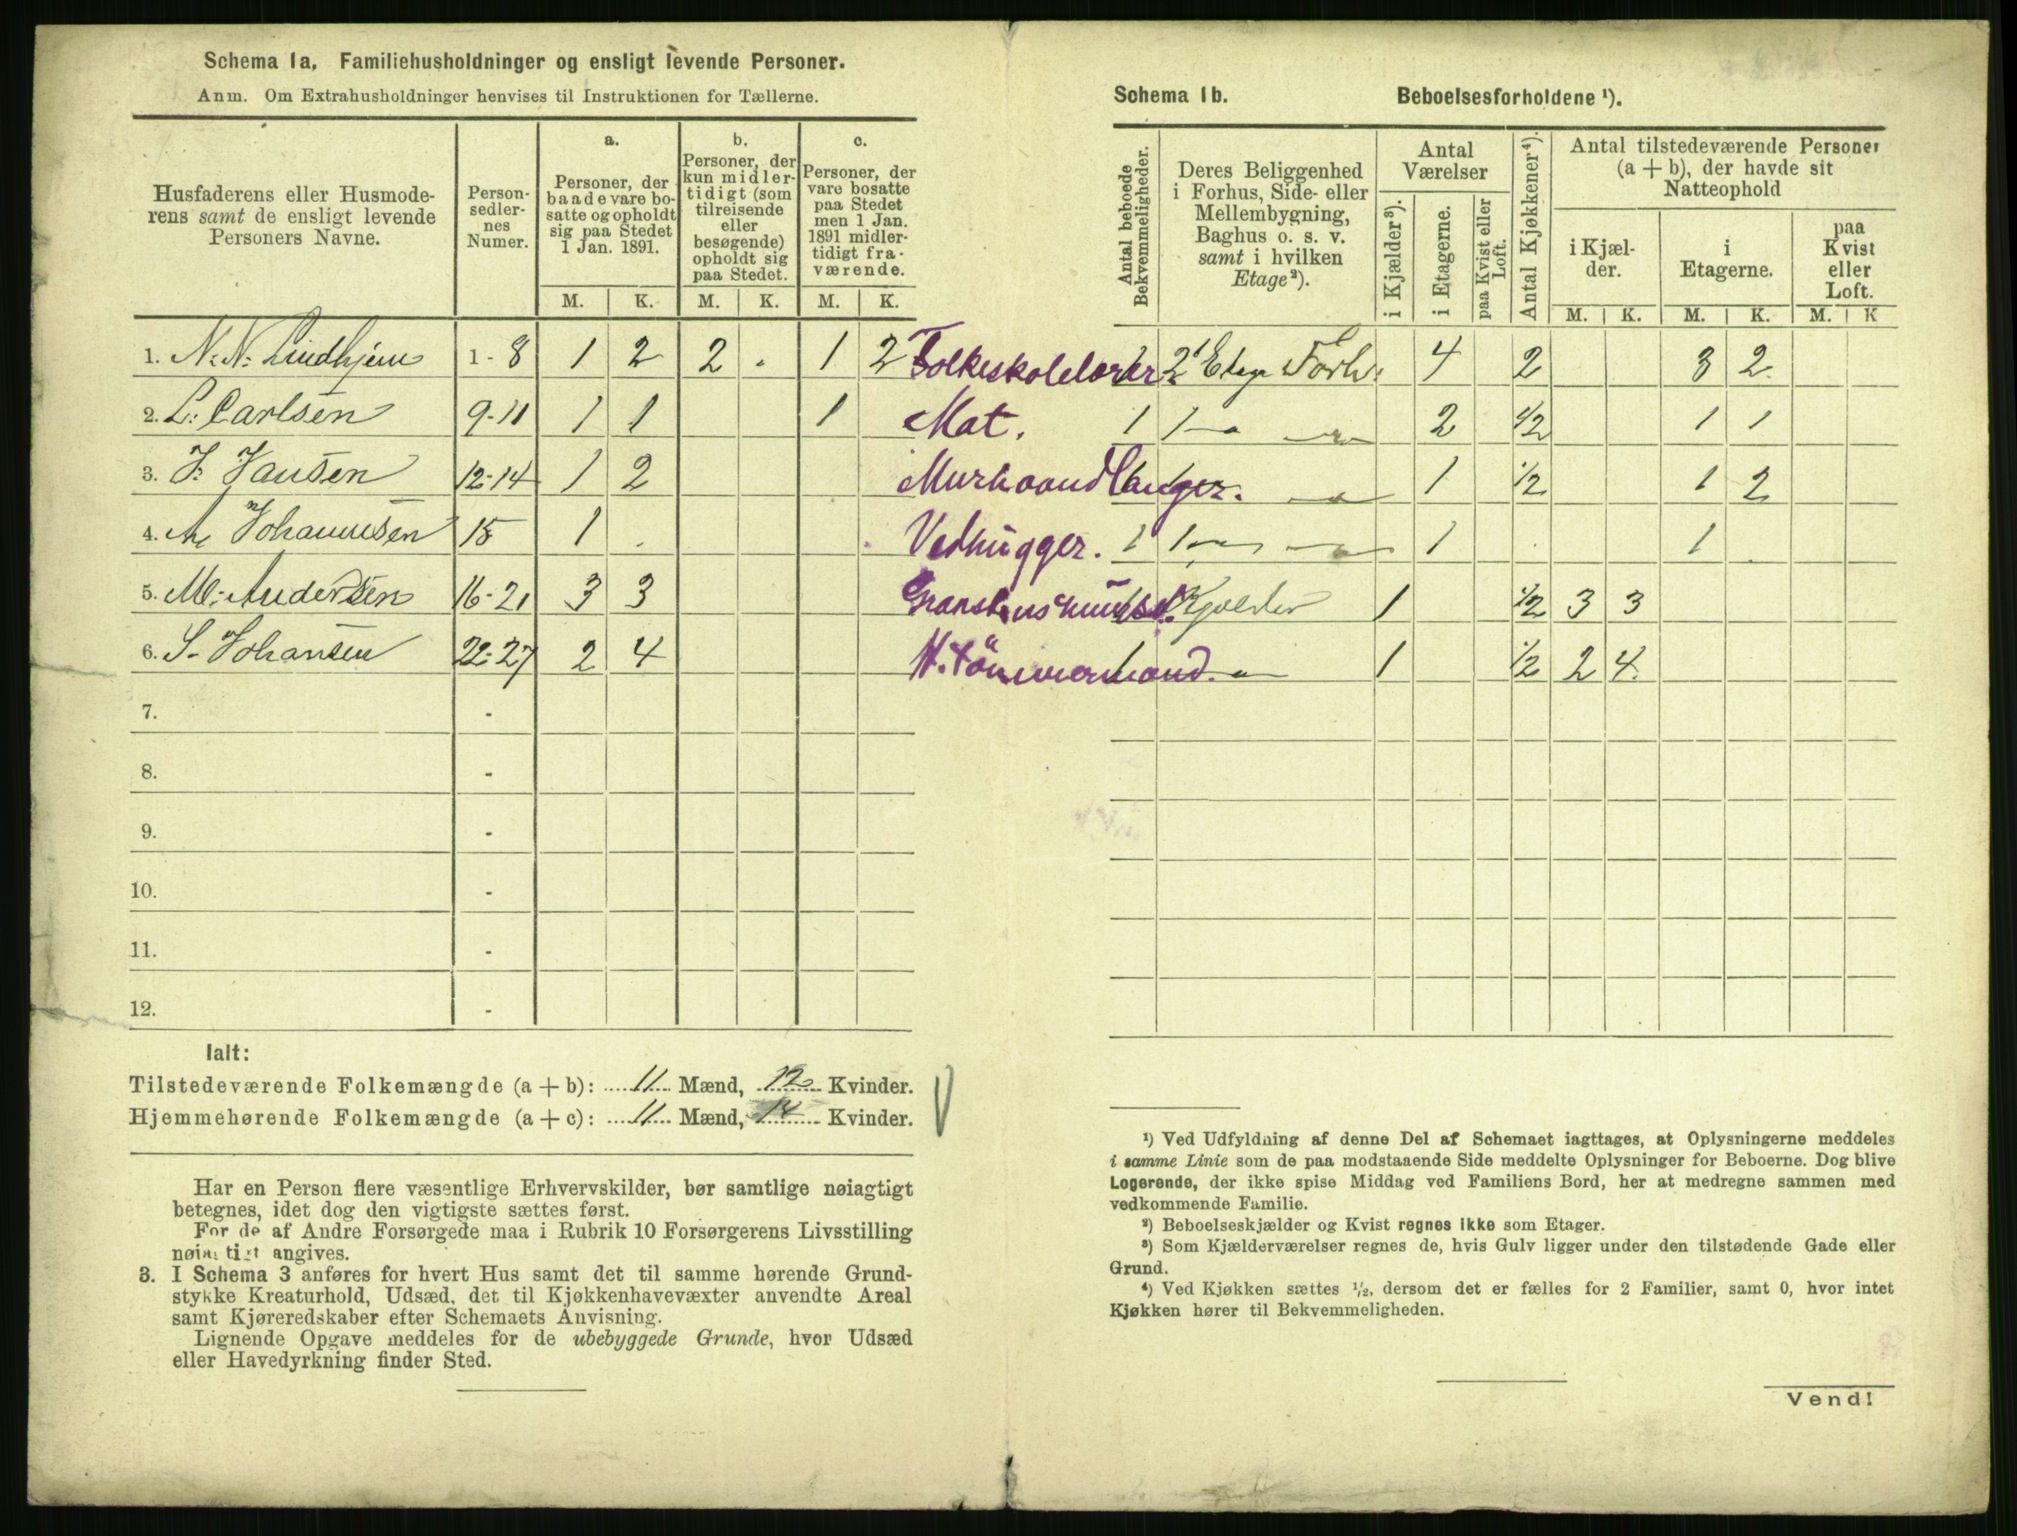 Schema 1a. Familiehusholdninger og ensligt levende Personer.
Anm. Om Extrahusholdninger henvises til Instruktionen for Tællerne.
Husfaderens eller Husmode-
rens samt de ensligt levende
Personers Navne.
Person-
sedler-
nes
Numer.
a.
Personer, der
baade vare bo-
satte og opholdt
sig paa Stedet
1 Jan. 1891.
b.
Personer, der
kun midler-
tidigt (som
tilreisende
eller
besøgende)
opholdt sig
paa Stedet.
c.
Personer, der
vare bosatte
paa Stedet
men 1 Jan.
1891 midler-
tidigt fra-
værende.
M. K. M. K. M. K.
1. N. N. Lindhjem 1 - 8 1 2 2 . 1 2
2. L. Carlsen 9-11 1 1 1
3. J. Jansen 12-14 1 2
4. Johannesen 15 1 .
5. M. Andersen 16-21 3 3
6. S. Johansen 22-27 2 4
7. -
8. -
9. -
10. -
11. -
12. -
Ialt:
Tilstedeværende Folkemængde (a + b): 11 Mænd, 12 Kvinder.
Hjemmehørende Folkemængde (a + c): 11 Mænd, 14 Kvinder.
Har en Person flere væsentlige Erhvervskilder, bør samtlige nøiagtigt
betegnes, idet dog den vigtigste sættes først.
For de af Andre Forsørgede maa i Rubrik 10 Forsørgerens Livsstilling
nøiagtigt angives.
3. I Schema 3 anføres for hvert Hus samt det til samme hørende Grund-
stykke Kreaturhold, Udsæd, det til Kjøkkenhavevæxter anvendte Areal
samt Kjøreredskaber efter Schemaets Anvisning.
Lignende Opgave meddeles for de ubebyggede Grunde, hvor Udsæd
eller Havedyrkning finder Sted.
Schema 1b. Beboelsesforholdene ¹).
Antal beboede
Bekvemmeligheder.
Deres Beliggenhed
i Forhus, Side- eller
Mellembygning,
Baghus o. s. v.
samt i hvilken
Etage²).
Antal
Værelser
i Kjælder³).
i Etagerne.
paa Kvist eller
Loft.
Antal Kjøkkener⁴).
Antal tilstedeværende Personer
(a + b), der havde sit
Natteophold
i Kjæl-
der.
i
Etagerne.
paa
Kvist
eller
Loft.
M. K. M. K. M. K
Folkeskolelærer 2 Etage Forh. 4 2 3 2
Mat. 1 1 2 1/2 1 1
Murhaandlanger. 1 1/2 1 2
Vedhugger. 1 1 1 . 1
Kjælder 1 1/2 3 3
Tömmermand. 1 1/2 2 4
¹) Ved Udfyldning af denne Del af Schemaet iagttages, at Oplysningerne meddeles
i samme Linie som de paa modstaaende Side meddelte Oplysninger for Beboerne. Dog blive
Logerende, der ikke spise Middag ved Familiens Bord, her at medregne sammen med
vedkommende Familie.
²) Beboelseskjælder og Kvist regnes ikke som Etager.
³) Som Kjælderværelser regnes de, hvis Gulv ligger under den tilstødende Gade eller
Grund.
⁴) Ved Kjøkken sættes ½, dersom det er fælles for 2 Familier, samt 0, hvor intet
Kjøkken hører til Bekvemmeligheden.
Vend!